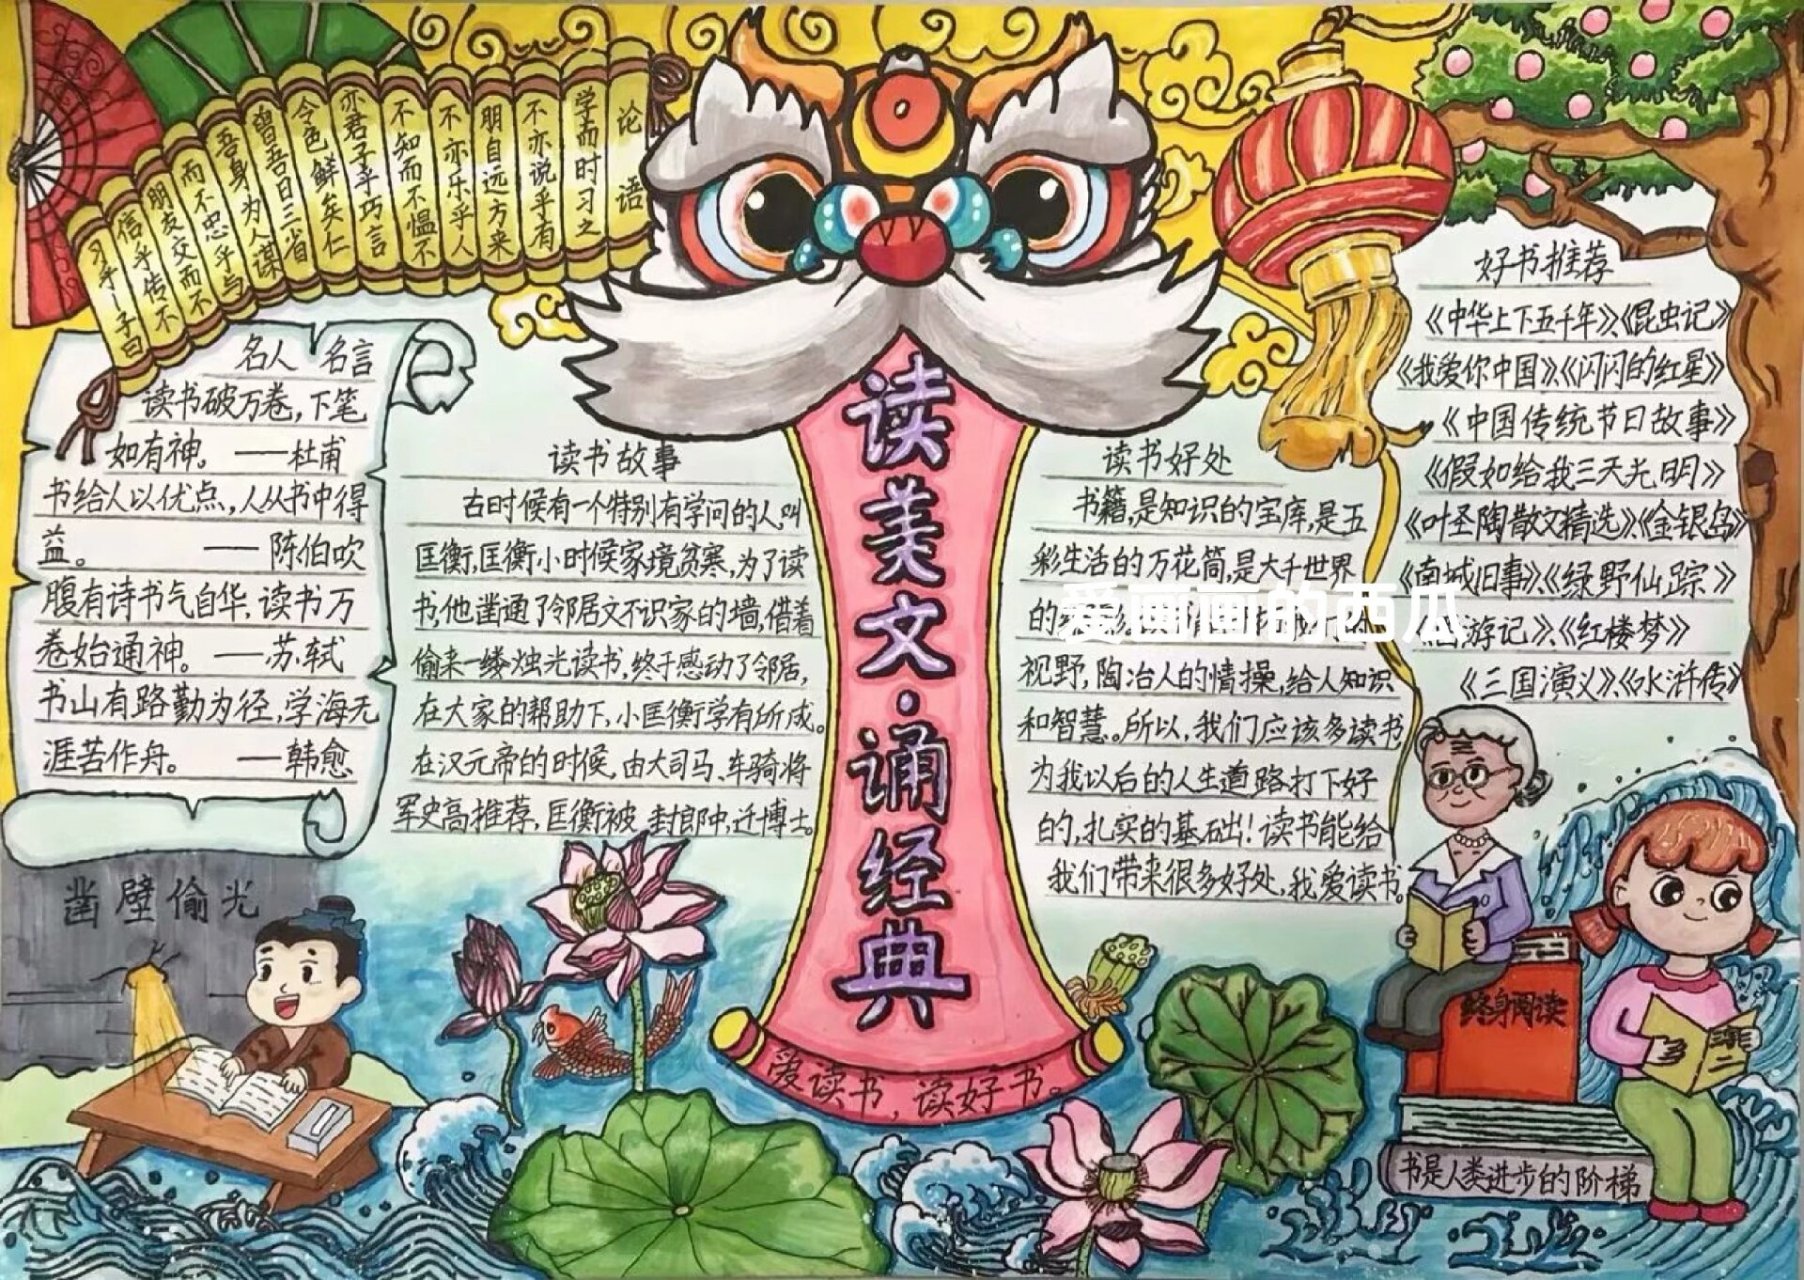 论语
学而时习之
不亦说乎有
朋自远方来
不亦乐乎人
不知而不愠不
亦君子乎巧言
令色鲜矣仁
曾吾日三省
吾身为人谋
而不忠乎与
朋友交而不
信乎传不
习乎-子曰
读美文·诵经典
爱读书,读好书。
名人名言
读书破万卷,下笔
如有神。——杜甫
书给人以优点,人从书中得
益。——陈伯吹
腹有诗书气自华,读书万
卷始通神。——苏轼
书山有路勤为径,学海无
涯苦作舟。——韩愈
读书故事
古时候有一个特别有学问的人,叫
匡衡,匡衡小时候家境贫寒,为了读
书,他凿通了邻居文不识家的墙,借着
偷来一缕烛光读书,终于感动了邻居,
在大家的帮助下,小匡衡学有所成。
在汉元帝的时候,由大司马、车骑将
军史高推荐,匡衡被封郎中,迁博士。
读书好处
书籍,是知识的宝库,是五
彩生活的万花筒,是大千世界
的
视野,陶冶人的情操,给人知识
和智慧。所以,我们应该多读书,
为我以后的人生道路打下好
的,扎实的基础!读书能给
我们带来很多好处,我爱读书。
好书推荐
《中华上下五千年》、《昆虫记》
《我爱你中国》、《闪闪的红星》
《中国传统节日故事》
《假如给我三天光明》
《叶圣陶散文精选》、《金银岛》
《南城旧事》、《绿野仙踪》
游记》、《红楼梦》
《三国演义》、《水浒传》
爱画画的西瓜
凿壁偷光
终身阅读
书是人类进步的阶梯